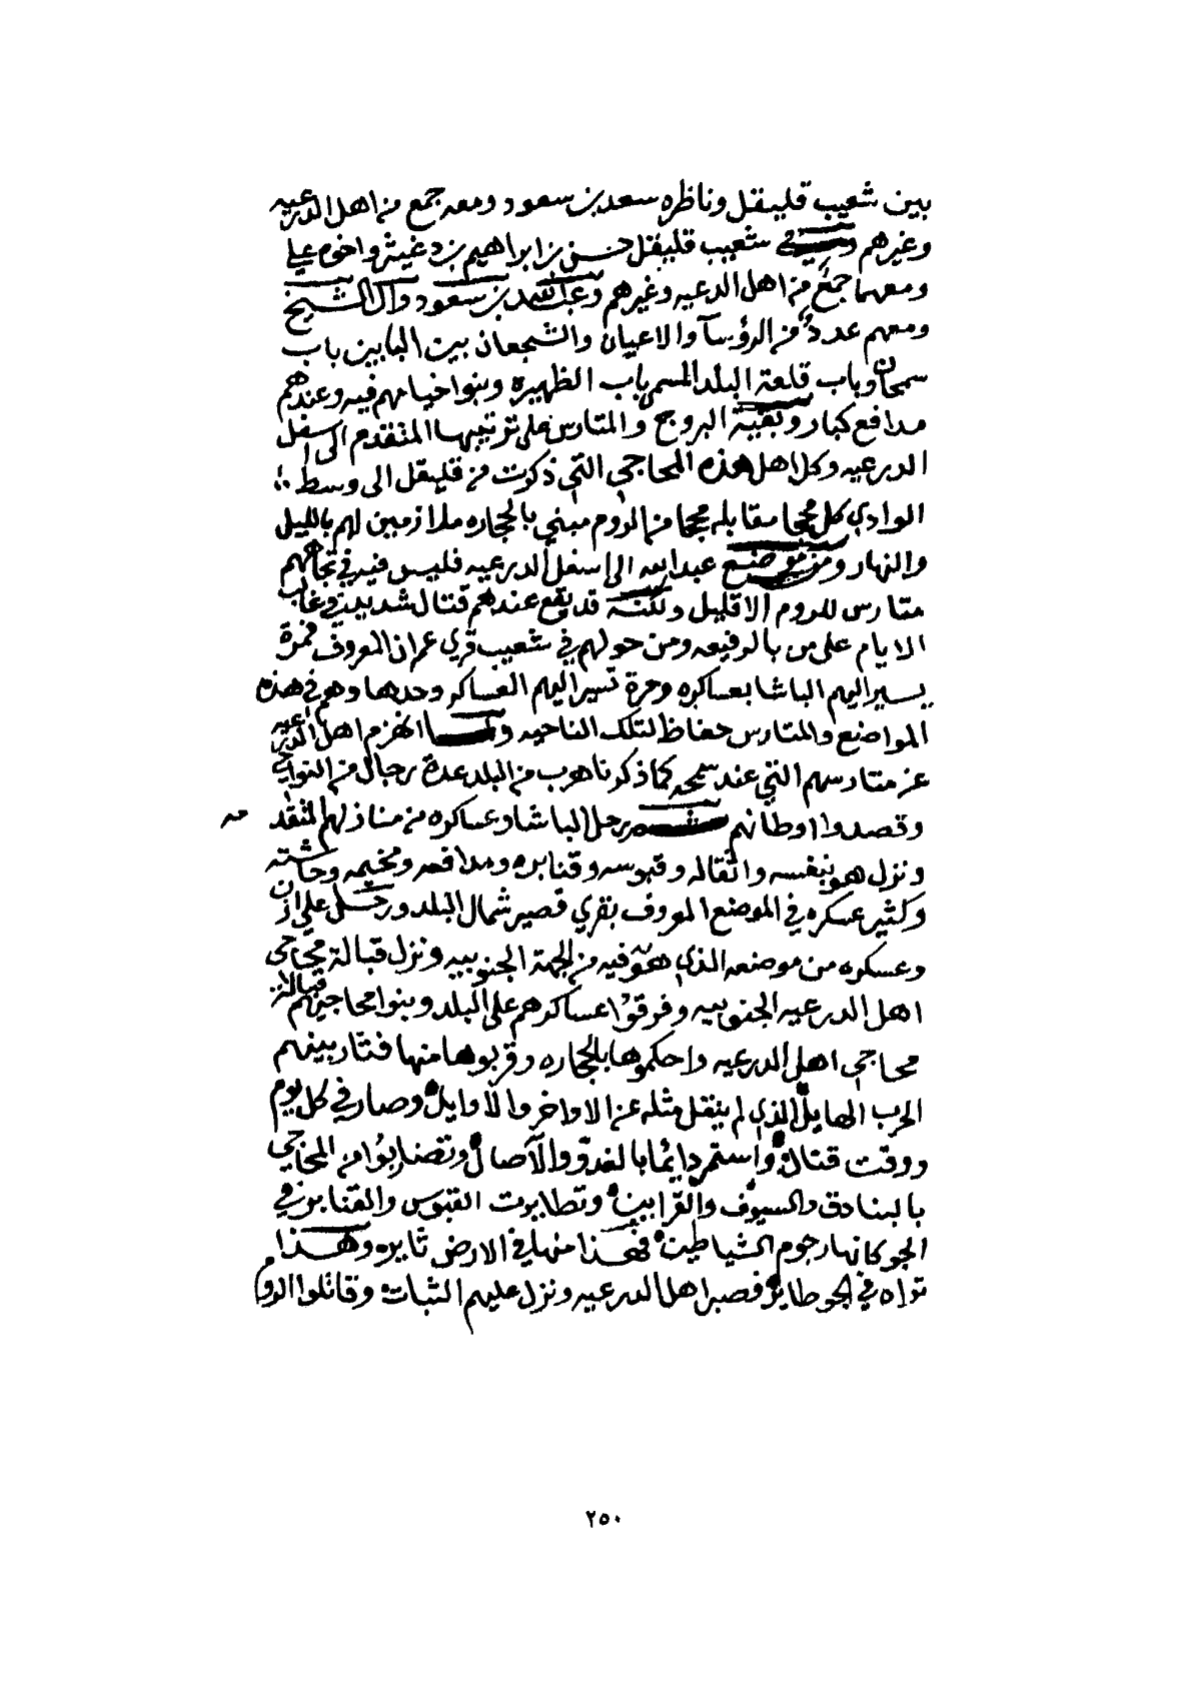 بين شعيب قليقل وناظره سعد بن سعود ومعه جمع من اهل الدرعيه
وغيرهم وفي شعيب قليقل حسن بن ابراهيم بن دغيثر واخوه علي
ومعهما جمع من اهل الدرعيه وغيرهم وعبدالله بن سعود وال الشيخ
ومعهم عدد من الرؤسآ والاعيان والشجعان بين البابين باب
سمحان وباب قلعة البلد المسمى باب الظهيره وبنوا خيامهم فيه وعندهم
مدافع كبار وبقية البروج والمتارس على ترتيبها المتقدم الى اسفل
الدرعيه وكل اهل هذه المحاجي التي ذكرت من قليقل الى وسط
الوادي كل محجا مقابله محجا من الروم مبني بالحجاره ملازمين لهم بالليل
والنهار ومن موضع عبدالله الى اسفل الدرعيه فليس فيه في تجاههم
متارس للروم الا قليل ولكنه قد يقع عندهم قتال شديد في غالب
الايام على من بالرفيعه ومن حولهم في شعيب قري عمران المعروف فمرة
يسير اليهم الباشا بعساكره ومرة تسير اليهم العساكر وحدها وهم في هذه
المواضع والمتارس حفاظ لتلك الناحيه ولما انهزم اهل الدرعيه
عن متارسهم التي عند سمحه كما ذكرنا هرب من البلد عدة رجال من النواحي
وقصدوا اوطانهم ثم رحل الباشا وعساكره من منازلهم المتقد مه
ونزل هو بنفسه واثقاله وقبوسه وقنابره ومدافعه ومخيمه وحاشته
وكثير عسكره في الموضع المعروف بقري قصير شمال البلد ورحل علي ازن
وعسكره من موضعه الذي هو فيه من الجهة الجنوبيه ونزل قبالة محاجي
اهل الدرعيه الجنوبيه وفرقوا عساكرهم على البلد وبنوا محاجيهم قبالة
محاجي اهل الدرعيه واحكموها بالحجاره وقربوها منها فثار بينهم
الحرب الهايل الذي لم ينقل مثله عن الاواخر والاوايل وصار في كل يوم
ووقت قتال واستمر دايما بالغدو والآصال وتضاربوا من المحاجي
بالبنادق والسيوف والقرابين وتطايرت القبوس والقنابر في
الجو كانها رجوم الشياطين فهذا منها في الارض ثايره وهذا
تراه في الجو طايره فصبر اهل الدرعيه ونزل عليهم الثبات وقاتلوا الروم
٢٥٠